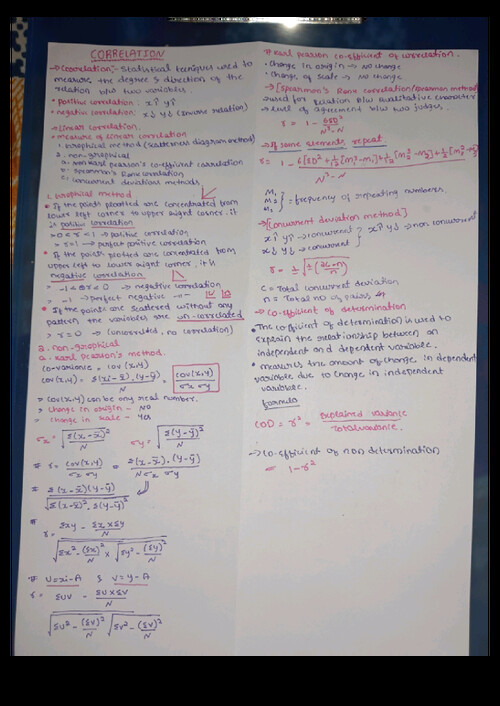 CORRELATION
→ Coorelation;- Statistical tecniques used to
measure the degree & direction of the
relation b/w two variables.
• positive correlation : x↑ y↑
• negative correlation : x↓ y↓ (Inverse relation)
→ Linear correlation.
• measure of linear correlation
1. Graphical method (scattered diagram method)
2. non-graphical
a. karl pearson's coefficient correlation
b. spearman's Rank correlation
c. concurrent deviations methods.
1. Graphical method
* If the points plotted are concentrated from
lower left corner to upper right corner. it
is positive correlation
> 0 < r < 1 → positive correlation
> r = 1 → perfect positive correlation
* If the points plotted are concentrated from
upper left to lower right corner, it is
negative correlation
> -1 < r < 0 → negative correlation
> -1 → perfect negative -"-
* If the points are scattered without any
pattern the variables are un-correlated
> r = 0 → (unrelated, no correlation)
2. non-graphical
a. karl pearson's method.
co-variance = cov (x,y)
cov (x,y) = Σ(xi-x̄).(y-ȳ) / N
cov(x,y) / σx σy
> cov(x,y) can be any real number.
> change in origin - NO
> change in scale - Yes
σx = √Σ(x-x̄)²/N σy = √Σ(y-ȳ)²/N
* r = cov(x,y) / σx σy = Σ(x-x̄).(y-ȳ) / Nσx σy
= Σ(x-x̄)(y-ȳ) / √Σ(x-x̄)².Σ(y-ȳ)²
#
r = Σxy - Σx×Σy/N / √Σx²-(Σx)²/N × √Σy²-(Σy)²/N
# U = xi-A & V = y-A
r = ΣUV - ΣU×ΣV/N
√ΣU²-(ΣU)²/N √ΣV²-(ΣV)²/N
# karl pearson co-efficient of correlation.
• change in origin → no change
• change of scale → no change
→ [Spearman's Rank correlation/spearman method]
used for Relation b/w qualitative character
→ level of agreement b/w two judges.
r = 1 - 6ΣD² / N³-N
→ If some elements repeat
r = 1 - 6[ΣD²+1/12[m₁³-m₁]+1/12[m₂³-m₂]+1/12[m₃³-m₃]] / N³-N
M₁
M₂ } = frequency of repeating numbers.
M₃
→ [concurrent deviation method]
x↑ y↑ → concurrent } x↑ y↓ → non concurrent
x↓ y↓ → concurrent }
r = ±√±(2c-n/n)
c = Total concurrent deviation
n = Total no of pairs
→ Co-efficient of determination
• The coefficient of determination is used to
explain the relationship between an
independent and dependent variable.
* measures the amount of change in dependent
variable due to change in independent
variable.
formula
COD = r² = explained variance / Total variance.
→ Co-efficient of non determination
= 1-r²